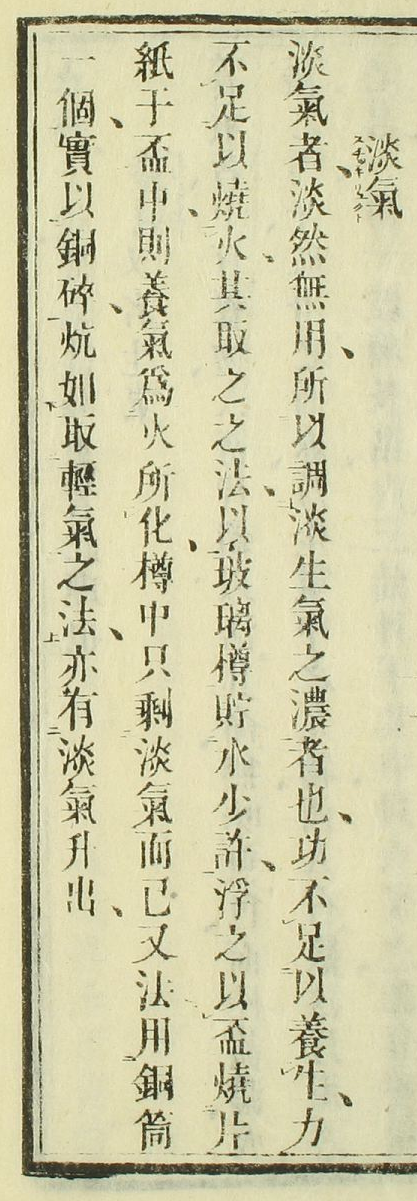 淡氣
淡氣者、淡然無用、所以調淡生氣之濃者也、功不足以養生、力
不足以燒火、其取之之法、以玻璃樽貯水少許、浮之以盃燒片
紙于盃中、則養氣爲火所化、樽中只剩淡氣而已又法用銅筒
一個、實以銅碎、炕如取輕氣之法、亦有淡氣升出、